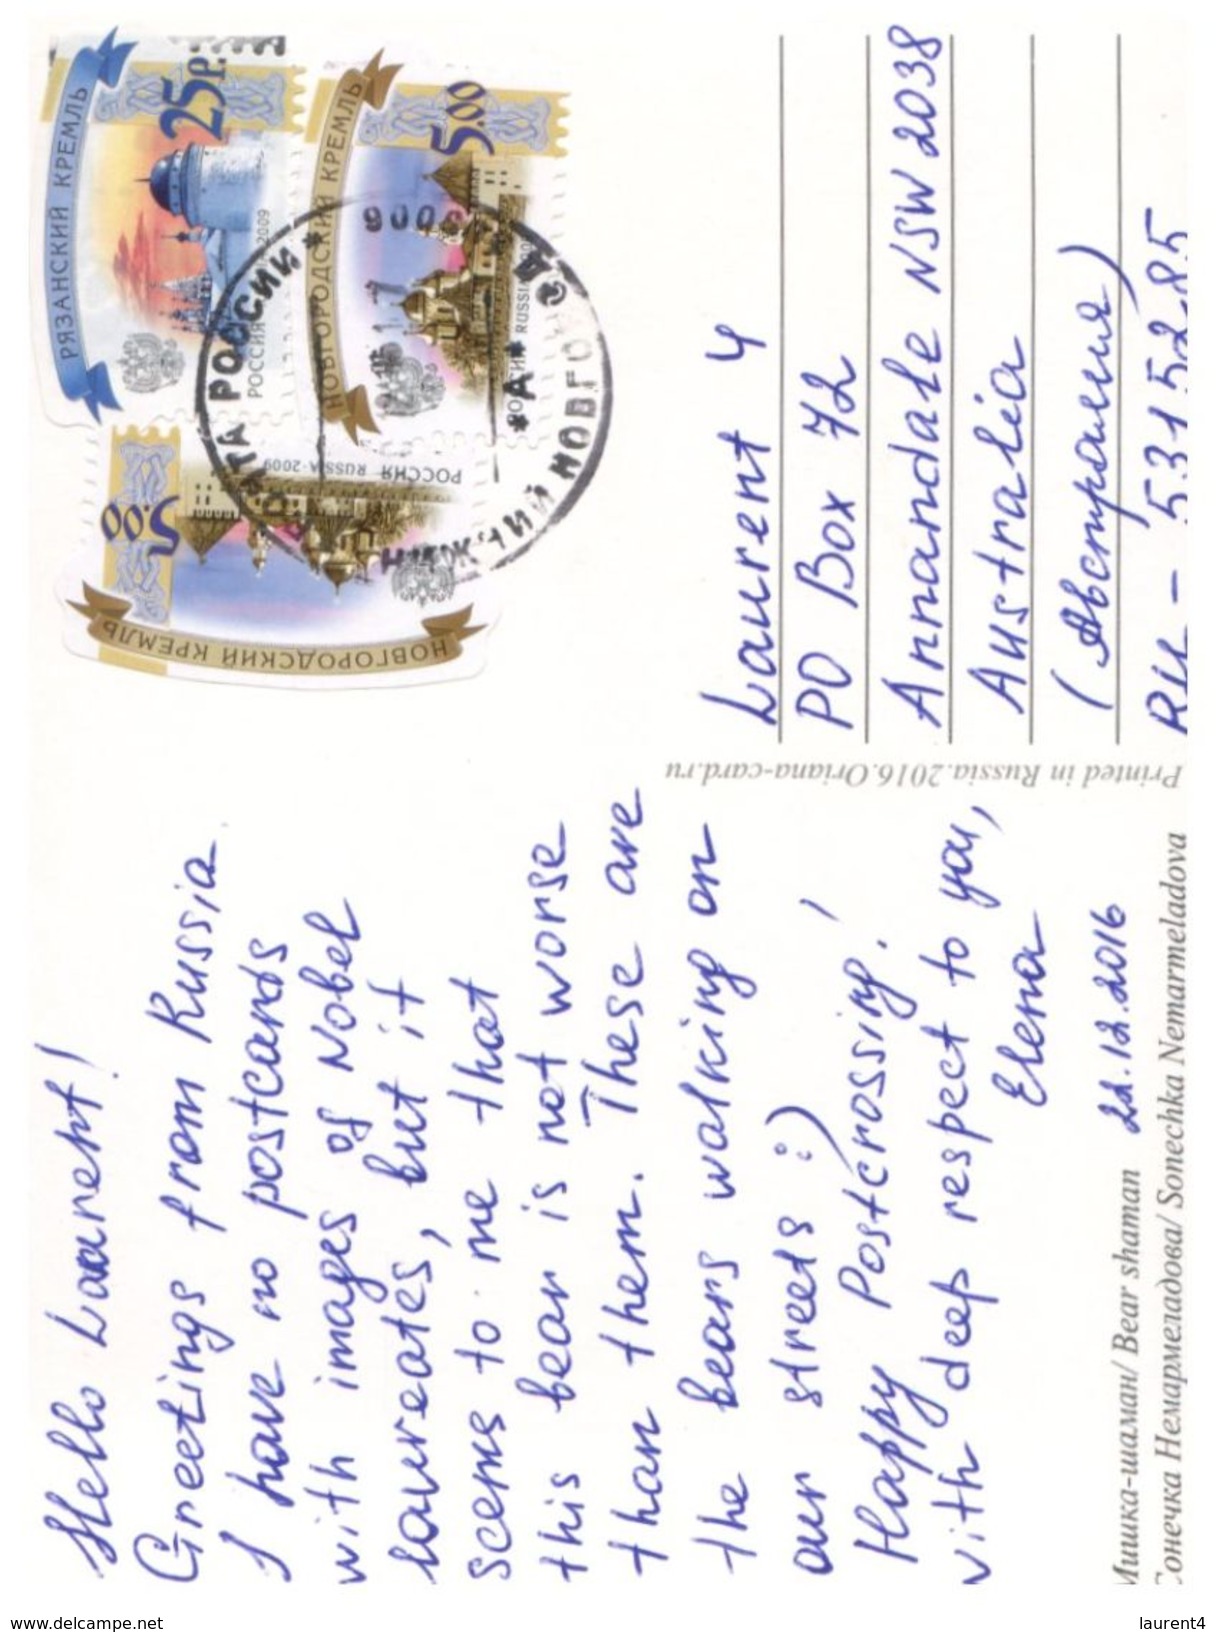 Hello Laurent!
Greetings from Russia.
I have no postcards
with images of Nobel
laureates, but it
seems to me that
this bear is not worse
than them. These are
the bears walking on
our streets :)
Happy Postcrossing!
with deep respect to you,
Elena
22.12.2016
Мишка-шаман/ Bear shaman
Сонечка Немармеладова/ Sonechka Nemarmeladova
Printed in Russia.2016.Oriana-card.ru
РЯЗАНСКИЙ КРЕМЛЬ
25р.
РОССИЯ 2009
НОВГОРОДСКИЙ КРЕМЛЬ
5.00
РОССИЯ RUSSIA
НОВГОРОДСКИЙ КРЕМЛЬ
5.00
РОССИЯ RUSSIA·2009
РОССИИ
*А*
Laurent 4
PO Box 72
Annandale NSW 2038
Australia
(Австралия)
RU - 5315285
www.delcampe.net
laurent4